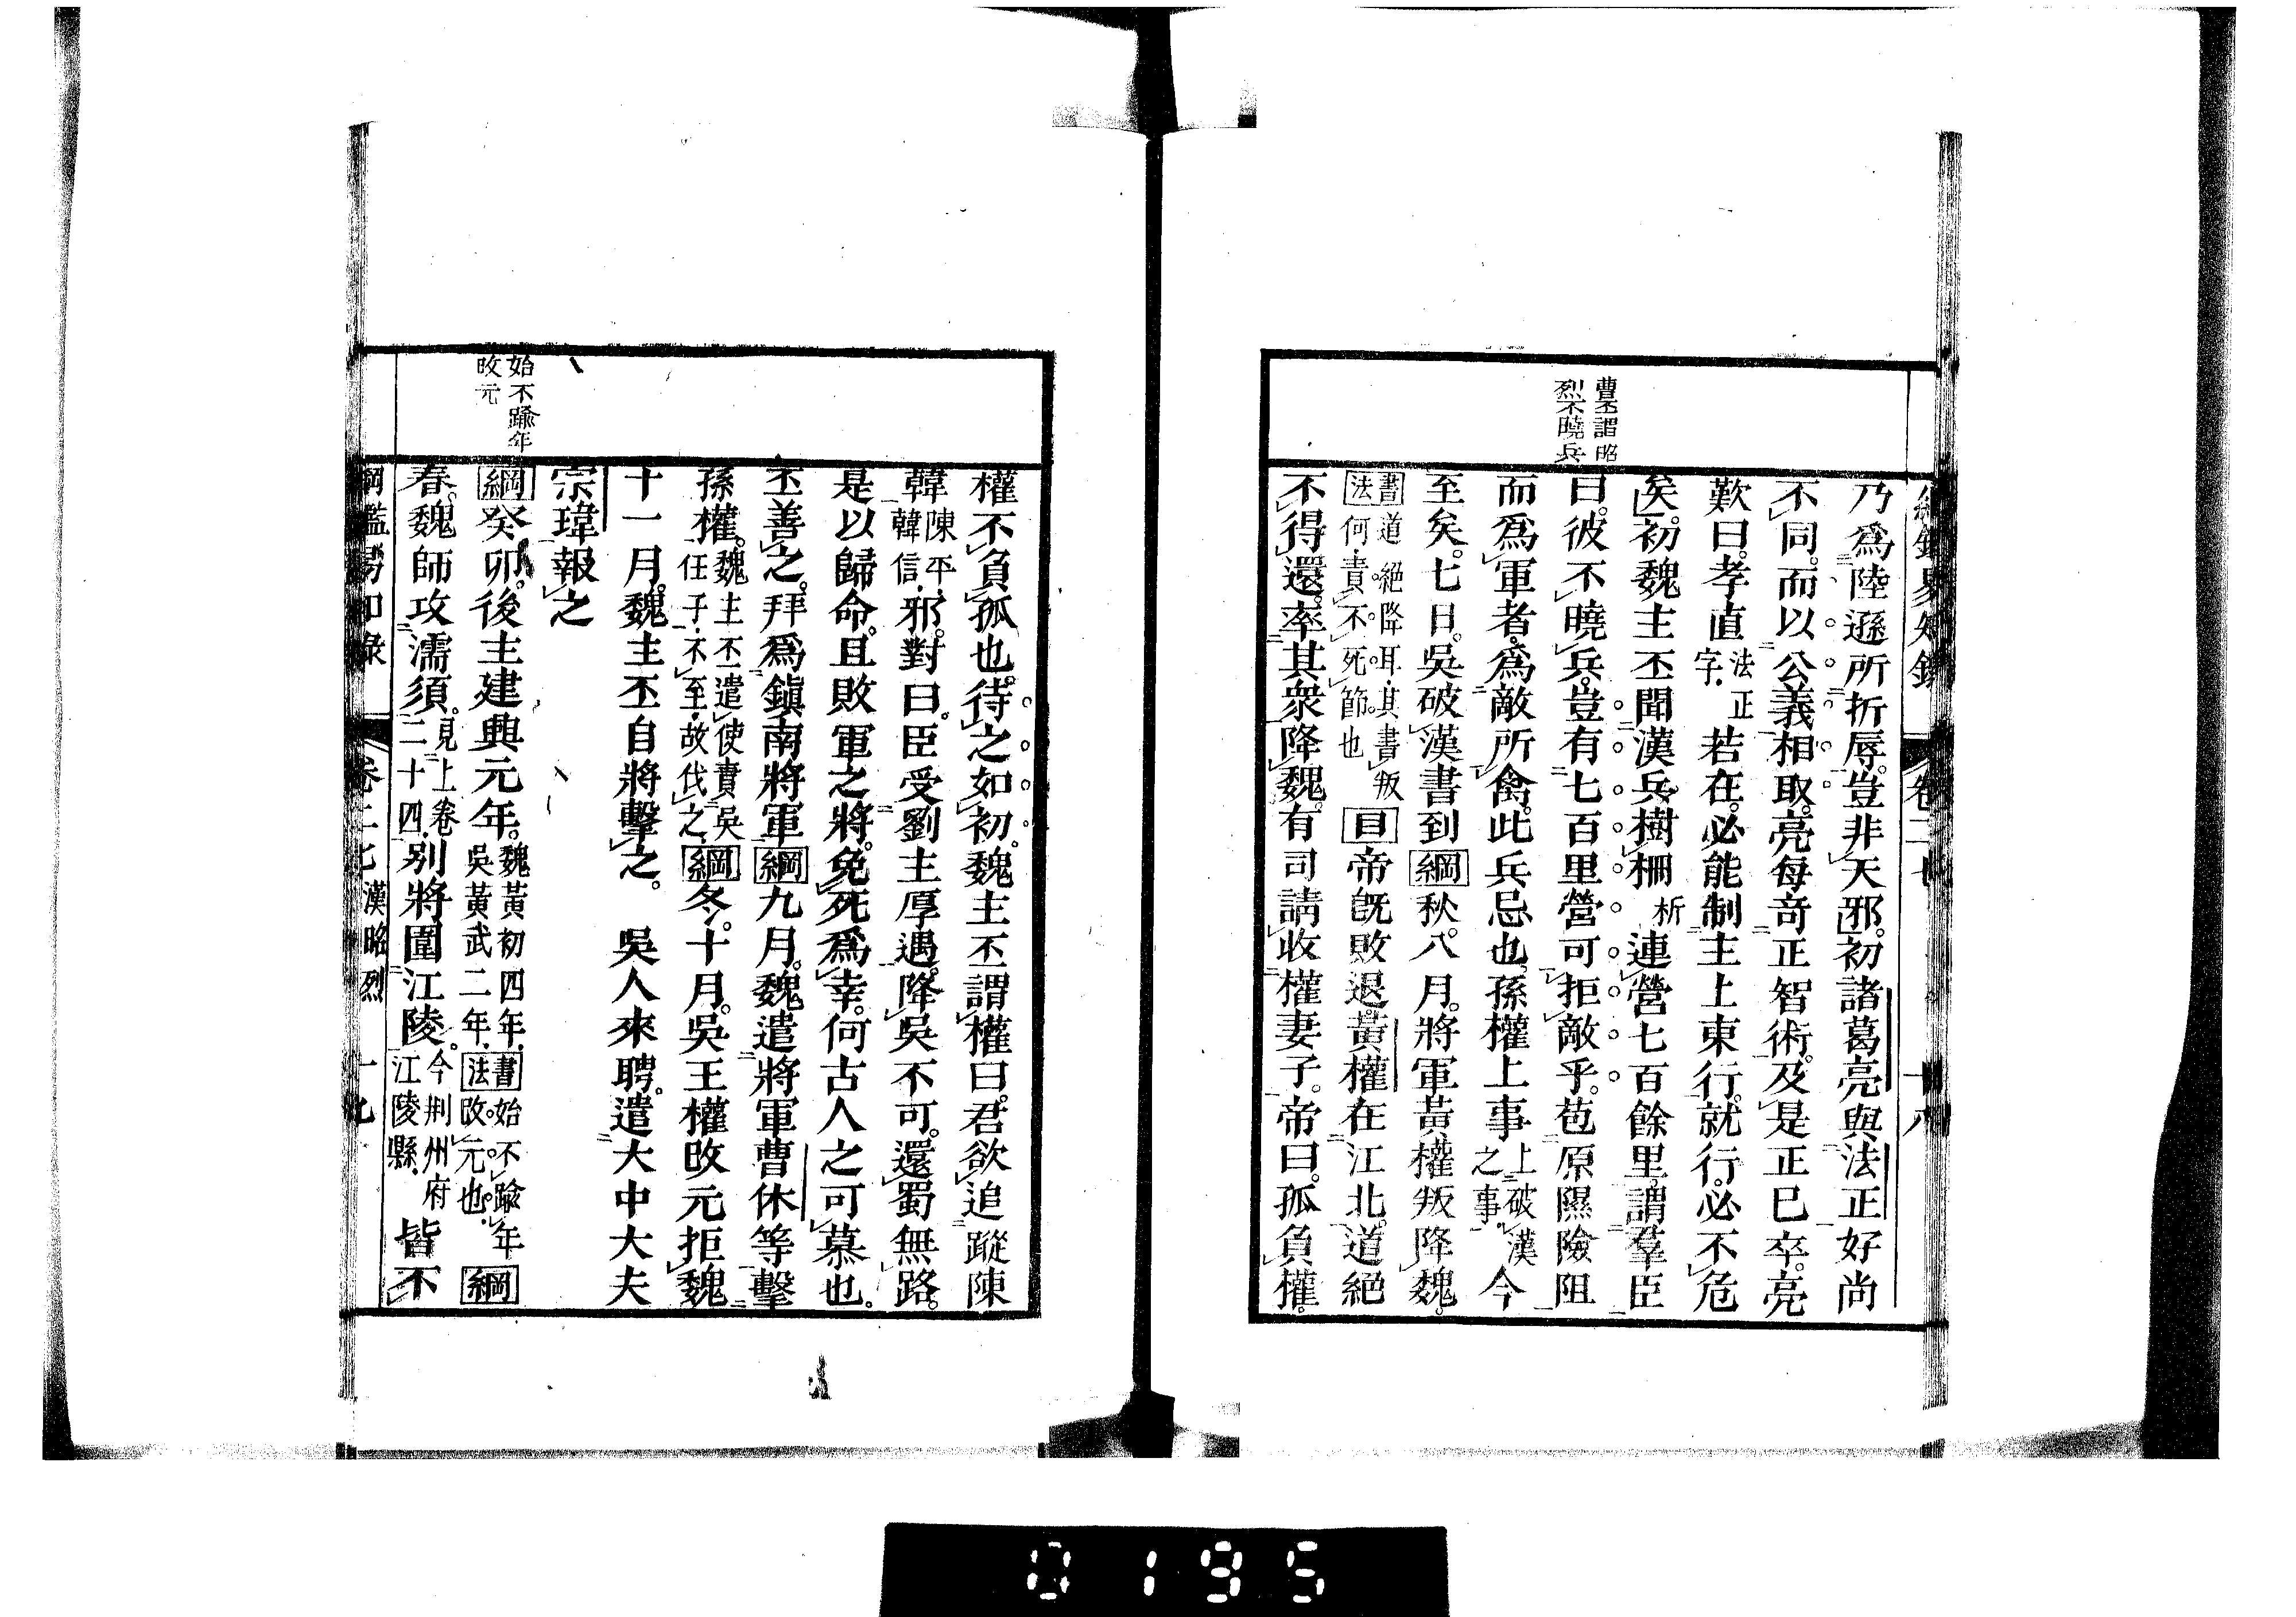 曹丕謂昭
烈不曉兵
乃爲陸遜所折辱。豈非天邪。初諸葛亮與法正好尚
不同。而以公義相取。亮每奇正智術。及是正已卒。亮
歎曰。孝直法正字.若在。必能制主上東行。就行。必不危
矣。初魏主丕聞漢兵樹柵析連營七百餘里。謂羣臣
曰。彼不曉兵。豈有七百里營可拒敵乎。苞原隰險阻
而爲軍者。爲敵所禽。此兵忌也。孫權上事上破漢之事.今
至矣。七日。吳破漢書到綱秋。八月。將軍黃權叛降魏。
書法道絕降耳.其書叛何.責不死節也目帝既敗退。黃權在江北。道絕
不得還。率其衆降魏。有司請收權妻子。帝曰。孤負權。
卷二七
十八
始不踰年
改元
權不負孤也。待之如初。魏主丕謂權曰。君欲追蹤陳
韓陳平.韓信.邪。對曰。臣受劉主厚遇。降吳不可。還蜀無路。
是以歸命。且敗軍之將。免死爲幸。何古人之可慕也。
丕善之。拜爲鎮南將軍綱九月。魏遣將軍曹休等擊
孫權。魏主丕遣使責吳任子.不至.故伐之.綱冬。十月。吳王權改元拒魏
十一月。魏主丕自將擊之。 吳人來聘。遣大中大夫
宗瑋報之
綱癸卯。後主建興元年。魏黃初四年.吳黃武二年.書法始不踰年改元也.綱
春。魏師攻濡須。見上卷二十四.別將圍江陵。今荆州府江陵縣.皆不
綱鑑易知錄 卷二七 漢昭烈 十九
0195